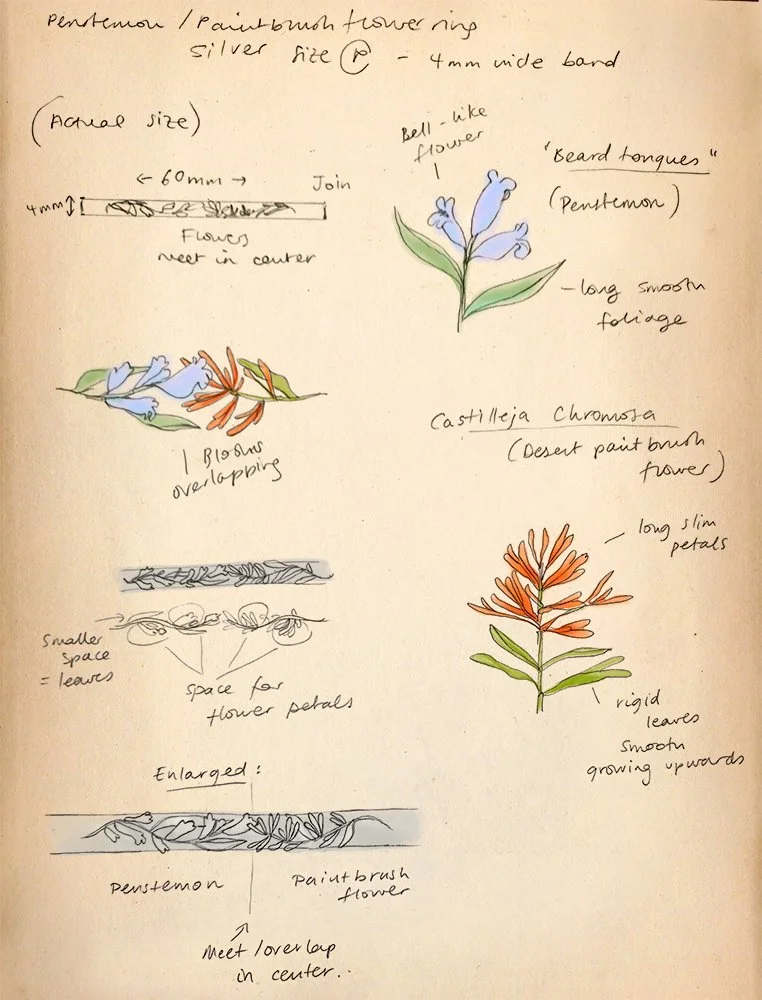 Penstemon / Paintbrush flower ring
silver size P - 4mm wide band
(Actual size)
← 60mm →
Join
4mm
Flowers
meet in center
Bell-like
flower
"Beard tongues"
(Penstemon)
- long smooth
foliage
Blooms
overlapping
Castilleja Chromosa
(Desert paintbrush
flower)
long slim
petals
rigid
leaves
smooth
growing upwards
Smaller
space
= leaves
space for
flower petals
Enlarged:
Penstemon
Paintbrush
flower
Meet/overlap
in center..